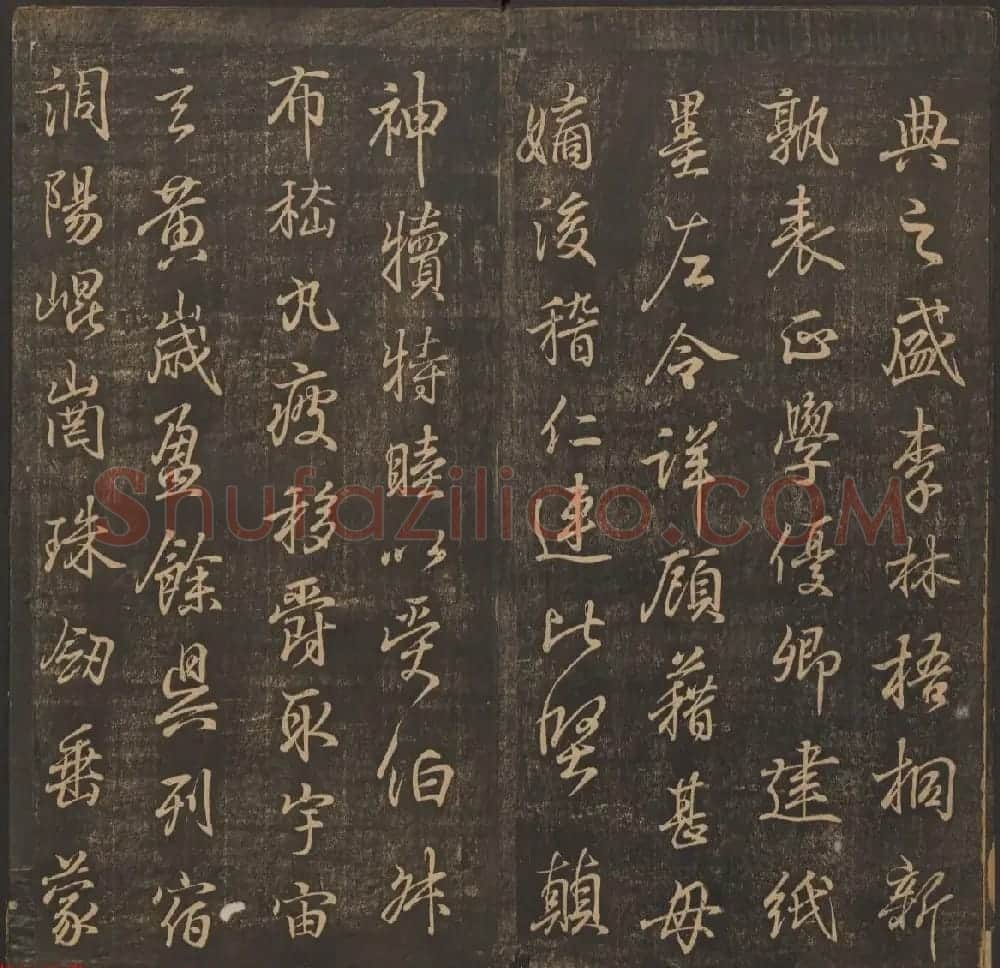 典之盛李林梧桐新
孰表正學優卿建紙
墨左令詳顧藉甚毋
嫡後稽仁連比堅顛
神犢特睦以受伯叔
布嵇丸疲移爵取宇宙
玄黃歲盈餘具列宿
調陽崐崗珠劒垂蒙
Shufaziliao.COM